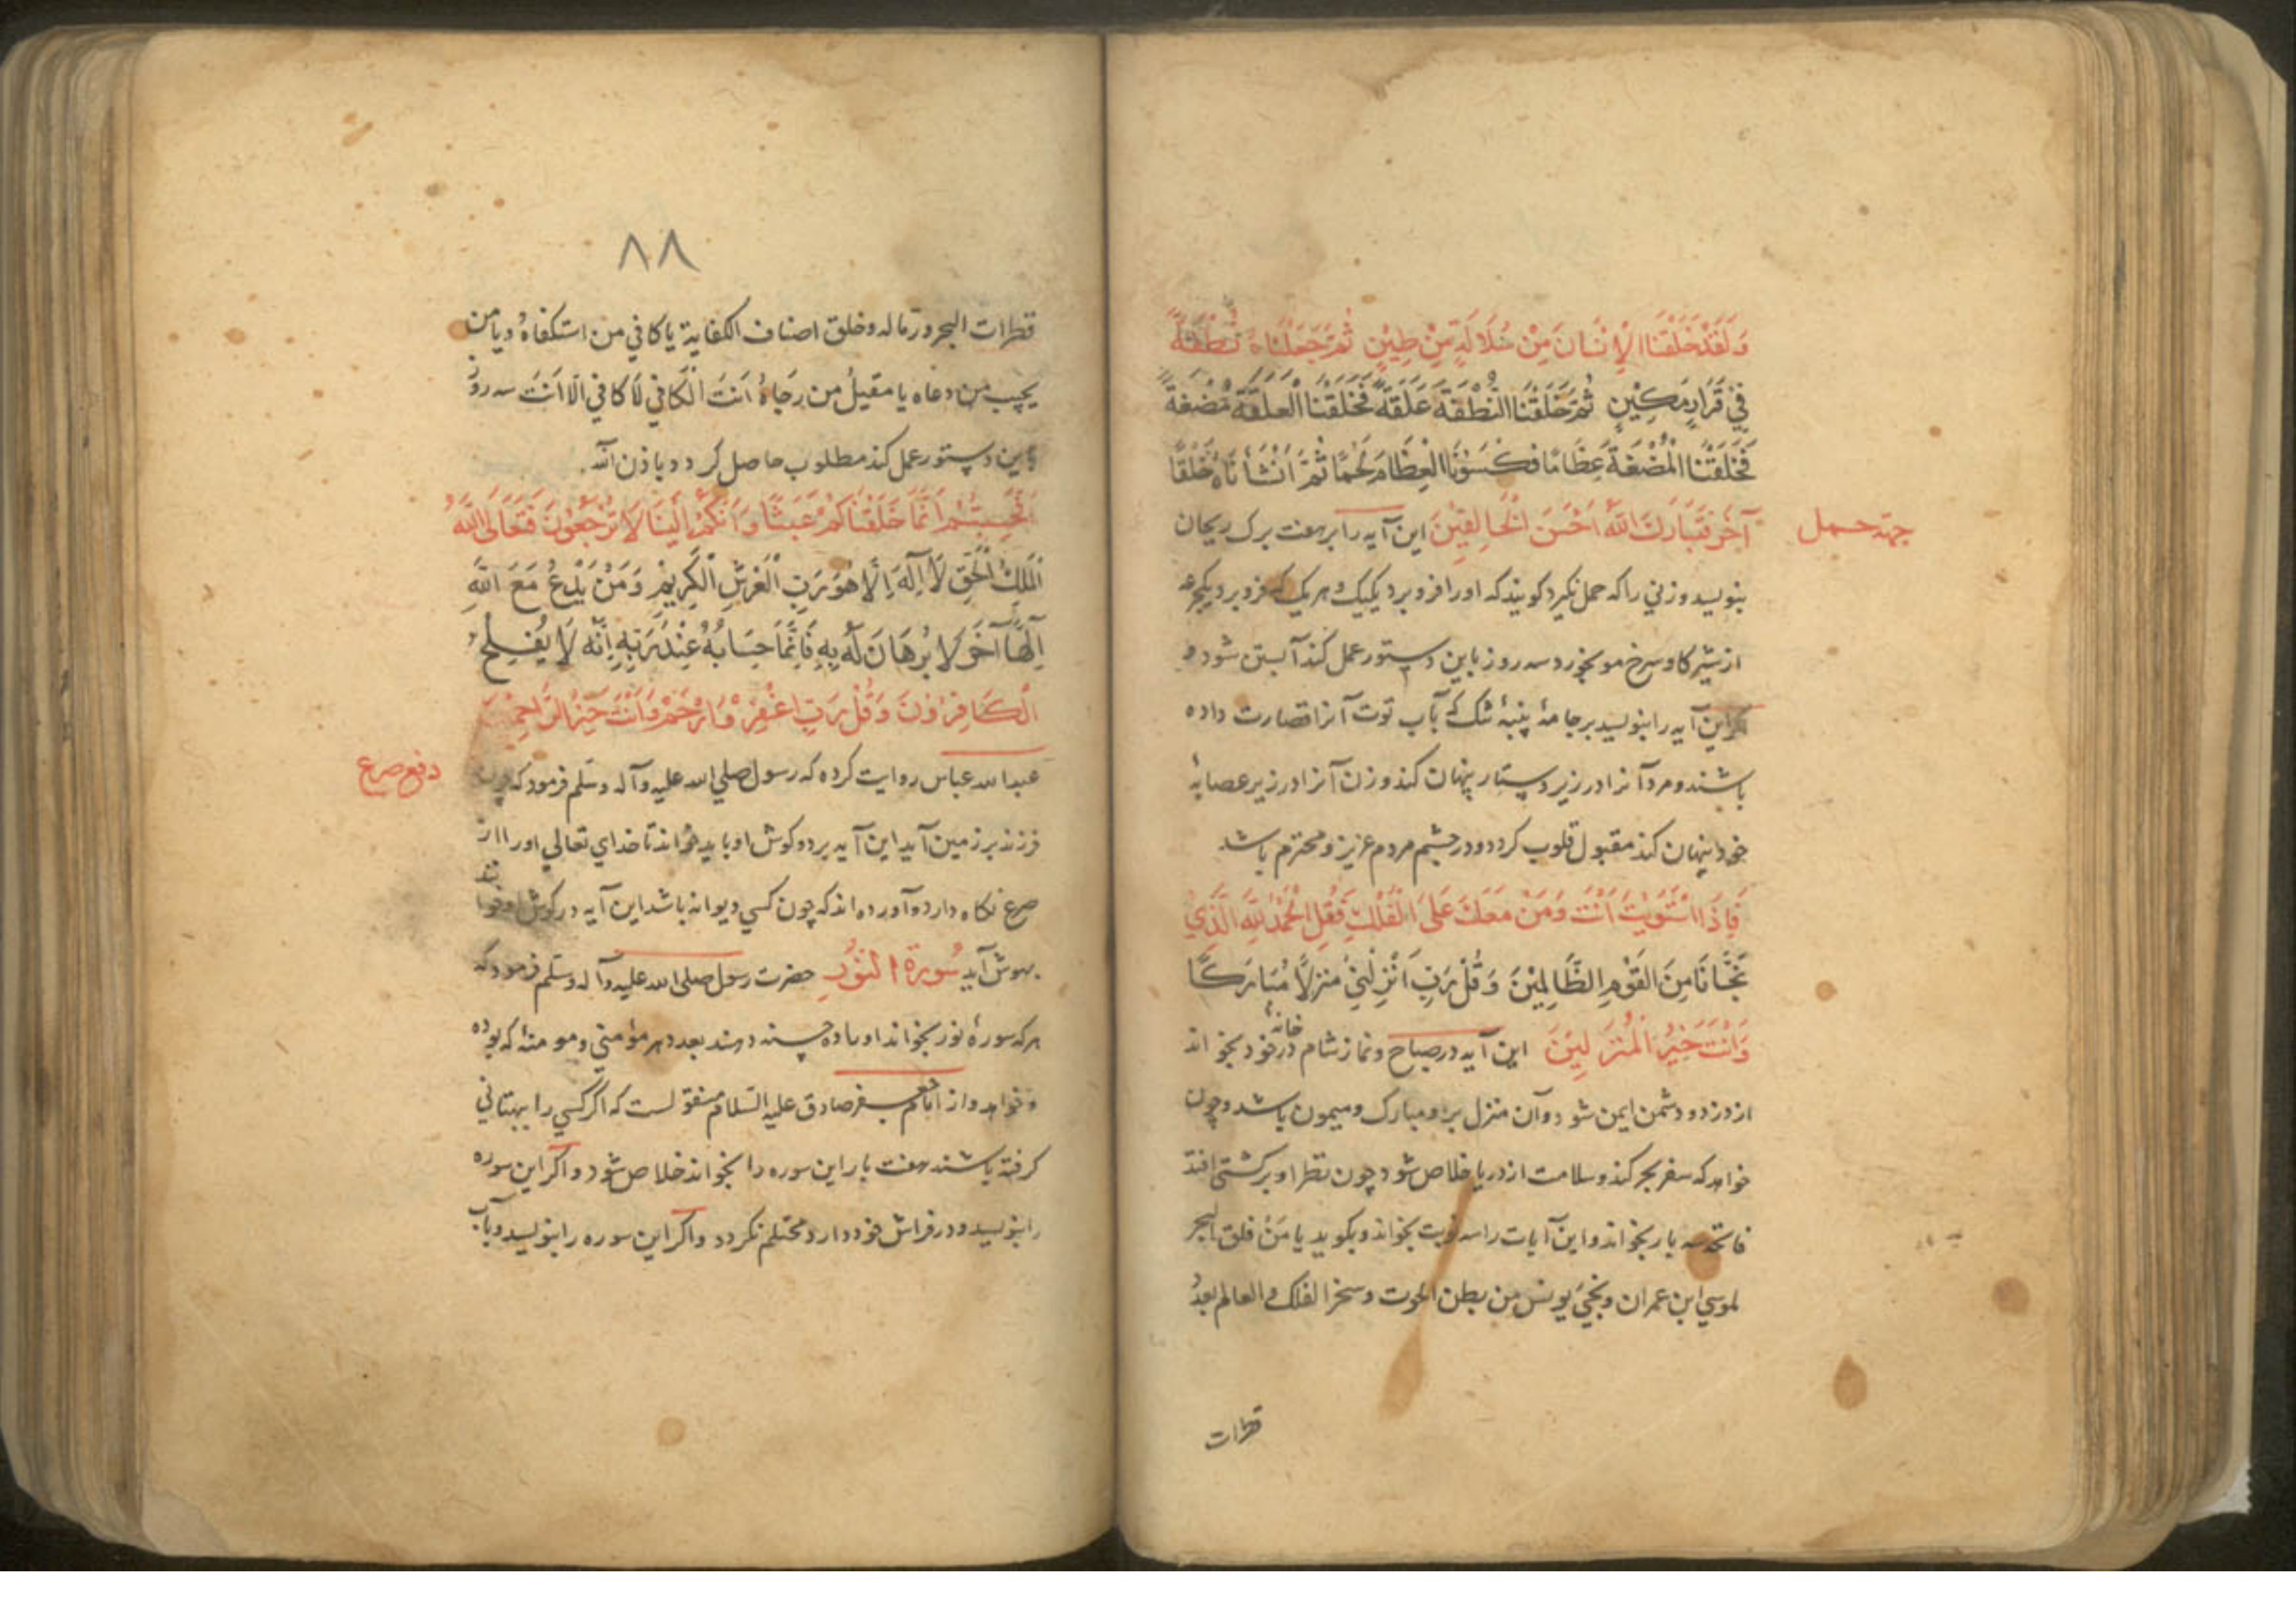 وَلَقَدْ خَلَقْنَا الْإِنْسَانَ مِنْ سُلَالَةٍ مِّنْ طِيْنٍ ثُمَّ جَعَلْنَاهُ نُطْفَةً
فِيْ قَرَارٍ مَكِيْنٍ ثُمَّ خَلَقْنَا النُّطْفَةَ عَلَقَةً فَخَلَقْنَا الْعَلَقَةَ مُضْغَةً
فَخَلَقْنَا الْمُضْغَةَ عِظَامًا فَكَسَوْنَا الْعِظَامَ لَحْمًا ثُمَّ اَنْشَأْنَاهُ خَلْقًا
آخَرَ فَتَبَارَكَ اللّٰهُ اَحْسَنَ الْخَالِقِيْنَ این آیه را بر هفت برک ریحان
جهة حمل
بنویسد و زنی را که حمل نکیرد کویند که اورا فرو برد یکیک و هر یک که فرو برد یکجرعه
از شیر کاو سرخ مو بخورد سه روز باین دستور عمل کند آبستن شود و
اکر این آیه را بنویسد بر جامهٔ پنبهٔ تنک که بآب توت آنرا قصارت داده
باشند و مرد آنرا در زیر دستار پنهان کند و زن آنرا در زیر عصابهٔ
خود پنهان کند مقبول قلوب کردد و در چشم مردم عزیز و محترم باشد
فَاِذَا اسْتَوَيْتَ اَنْتَ وَمَنْ مَعَكَ عَلَى الْفُلْكِ فَقُلِ الْحَمْدُ لِلّٰهِ الَّذِيْ
نَجَّانَا مِنَ الْقَوْمِ الظَّالِمِيْنَ وَقُلْ رَبِّ اَنْزِلْنِيْ مُنْزَلًا مُبَارَكًا
وَاَنْتَ خَيْرُ الْمُنْزِلِيْنَ این آیه در صباح و نماز شام در خانهٔ خود بخواند
از دزد و دشمن ایمن شود و آن منزل بر او مبارک و میمون باشد و چون
خواهد که سفر بحر کند و سلامت از دریا خلاص شود چون نظر او بر کشتی افتد
فاتحه سه بار بخواند و این آیات را سه نوبت بخواند و بکوید یا مَنْ فلق البحر
لموسی ابن عمران و نجّی یونس من بطن الحوت و سخر الفلک و العالم بعدد
قطرات
٨٨
قطرات البحر و رماله و خلق اصناف الکفایة یا کافی من استکفاهُ و یا من
یجیب من دعاه یا مقیلُ من رَجَاهُ اَنتَ الکَافی لَا کافی اِلّا اَنتَ سه روز
باین دستور عمل کند مطلوب حاصل کردد باذن الله
اَفَحَسِبْتُمْ اَنَّمَا خَلَقْنَاكُمْ عَبَثًا وَاَنَّكُمْ اِلَيْنَا لَا تُرْجَعُوْنَ فَتَعَالَى اللّٰهُ
الْمَلِكُ الْحَقِّ لَا اِلٰهَ اِلَّا هُوَ رَبِّ الْعَرْشِ الْكَرِيْمِ وَمَنْ يَدْعُ مَعَ اللّٰهِ
اِلٰهًا آخَرَ لَا بُرْهَانَ لَهُ بِهِ فَاِنَّمَا حِسَابُهُ عِنْدَ رَبِّهِ اِنَّهُ لَا يُفْلِحُ
الْكَافِرُوْنَ وَقُلْ رَبِّ اغْفِرْ وَارْحَمْ وَاَنْتَ خَيْرُ الرَّاحِمِيْنَ
عبدالله عباس روایت کرده که رسول صلی الله علیه وآله وسلم فرمود که چون
دفع صرع
فرزند بر زمین آید این آیه بر دو کوش او باید خواند تا خدای تعالی اورا از
صرع نکاه دارد و آورده اند که چون کسی دیوانه باشد این آیه در کوش او خوانند
بهوش آید سُورَةُ النُّورِ حضرت رسول صلی الله علیه وآله وسلم فرمود که
هر که سورهٔ نور بخواند اورا ده حسنه دهند بعدد هر مؤمنی و مومنهٔ که بوده
و خواهد و از امام جعفر صادق علیه السلام منقولست که اکر کسی را ببهتانی
کرفته باشند هفت بار این سوره را بخواند خلاص شود و اکر این سوره
را بنویسد و در فراش خود دارد محتلم نکردد و اکر این سوره را بنویسد و بآب